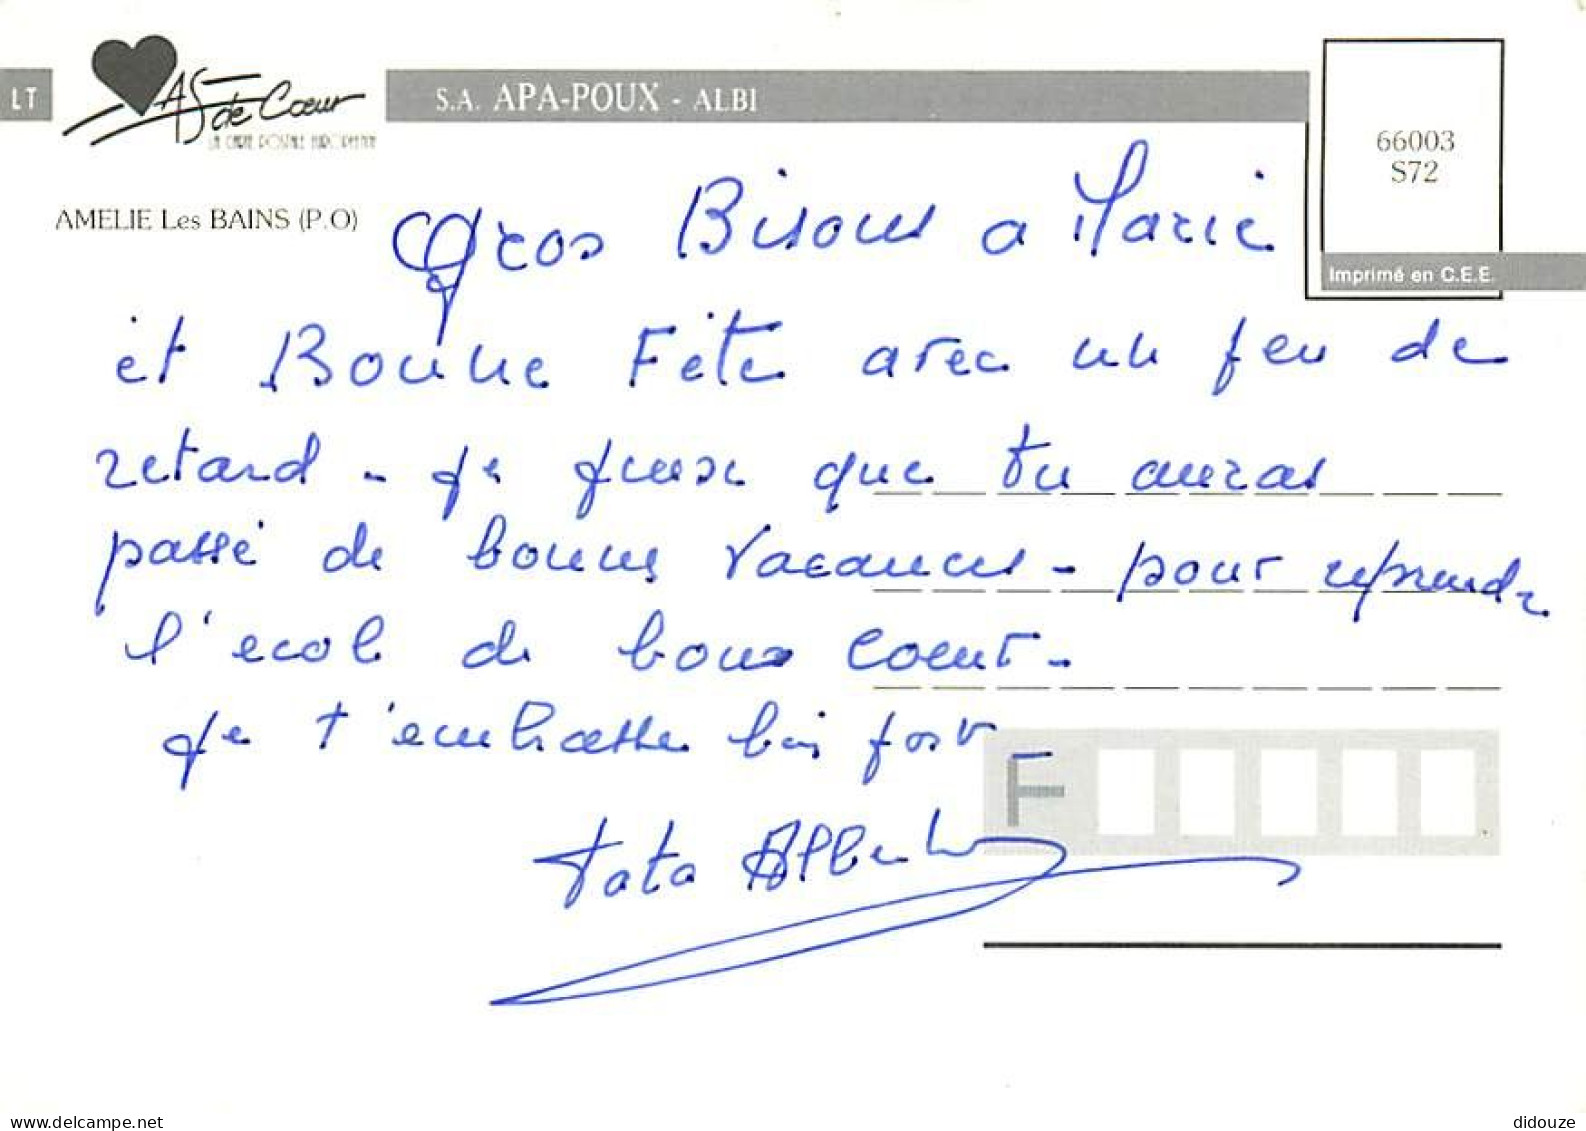 LT
As de Cœur
LA CARTE POSTALE EUROPEENNE
S.A. APA-POUX - ALBI
66003
S72
Imprimé en C.E.E.
AMELIE Les BAINS (P.O)
Gros Bisous a Marie
et Bonne Fête avec un peu de
retard - Je pense que tu auras
passé de bonnes vacances - pour reprendre
l'ecole de bons coeur -
Je t'embrasse bien fort
F
Tata Alberte
www.delcampe.net
didouze